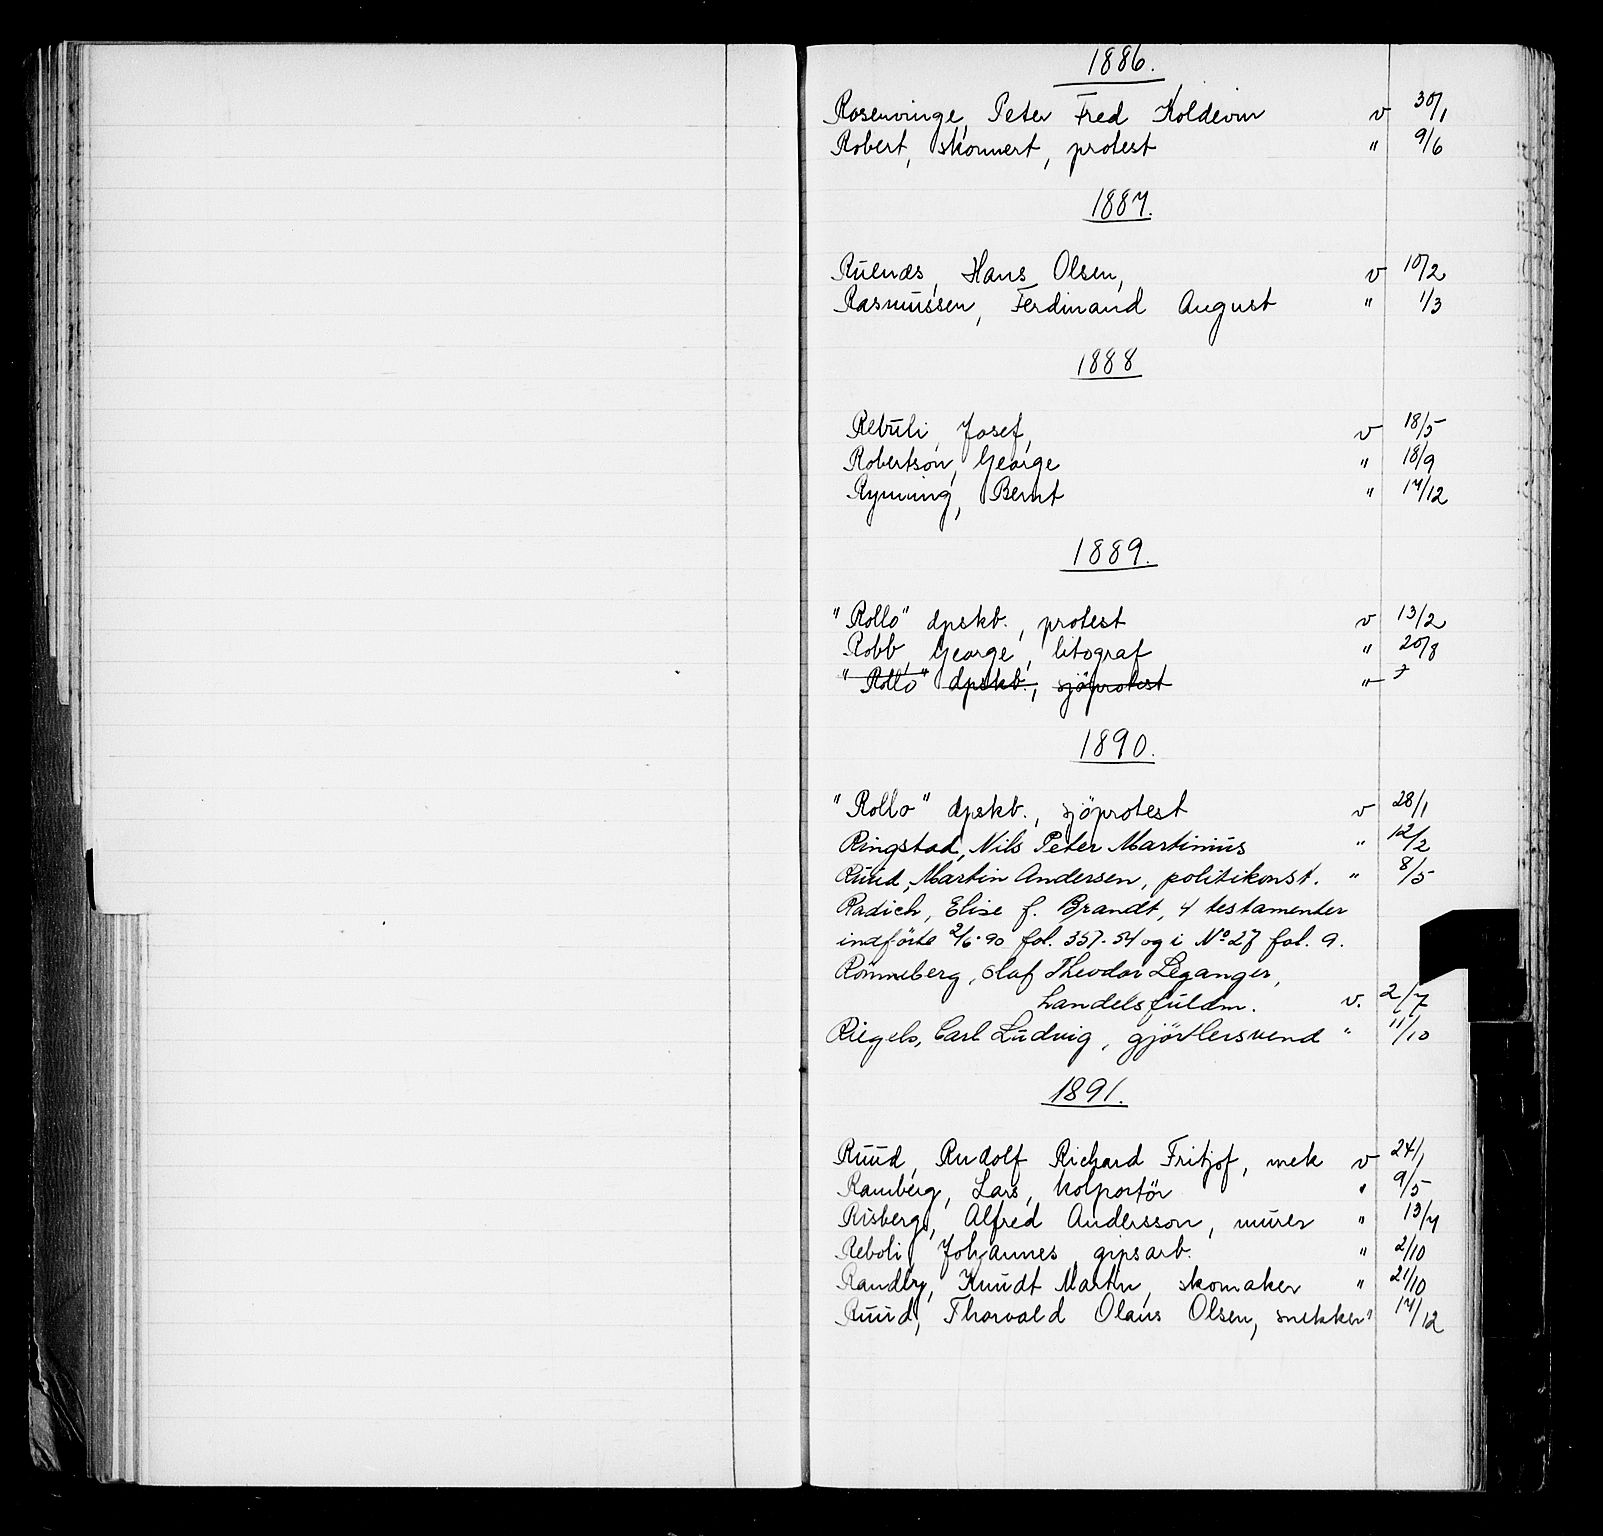 1886.
Rosenvinge, Peter Fred Koldevin v 30/1
Robert, skonnert, protest " 9/6
1887.
Ruenæs, Hans Olsen, v 10/2
Rasmussen, Ferdinand August " 1/3
1888
Rebuli, Josef, v 18/5
Robertson, George " 18/9
Rynning, Bernt " 14/12
1889.
"Rollo" dpskb., protest v 13/2
Robb, George, litograf " 20/8
"Rollo" dpskb., sjöprotest "
1890.
"Rollo" dpskb., sjöprotest v 28/1
Ringstad, Nils Peter Martinius " 12/2
Ruud, Martin Andersen, politikonst. " 8/5
Radich, Elise f. Brandt, 4 testamenter
indförte 2/6.90 fol. 357.54 og i No 27 fol. 9.
Rönneberg, Olaf Theodor Leganger,
handelsfuldm. v. 2/7
Riegels, Carl Ludvig, gjörtlersvend " 11/10
1891.
Ruud, Rudolf Richard Fritjof, mek v 24/1
Ramberg, Lars, kolportör " 9/5
Risberg, Alfred Andersson, murer " 13/7
Reboli, Johannes gipsarb. " 2/10
Randby, Knudt Martin, skomaker " 21/10
Ruud, Thorvald Olaus Olsen, snekker " 14/12